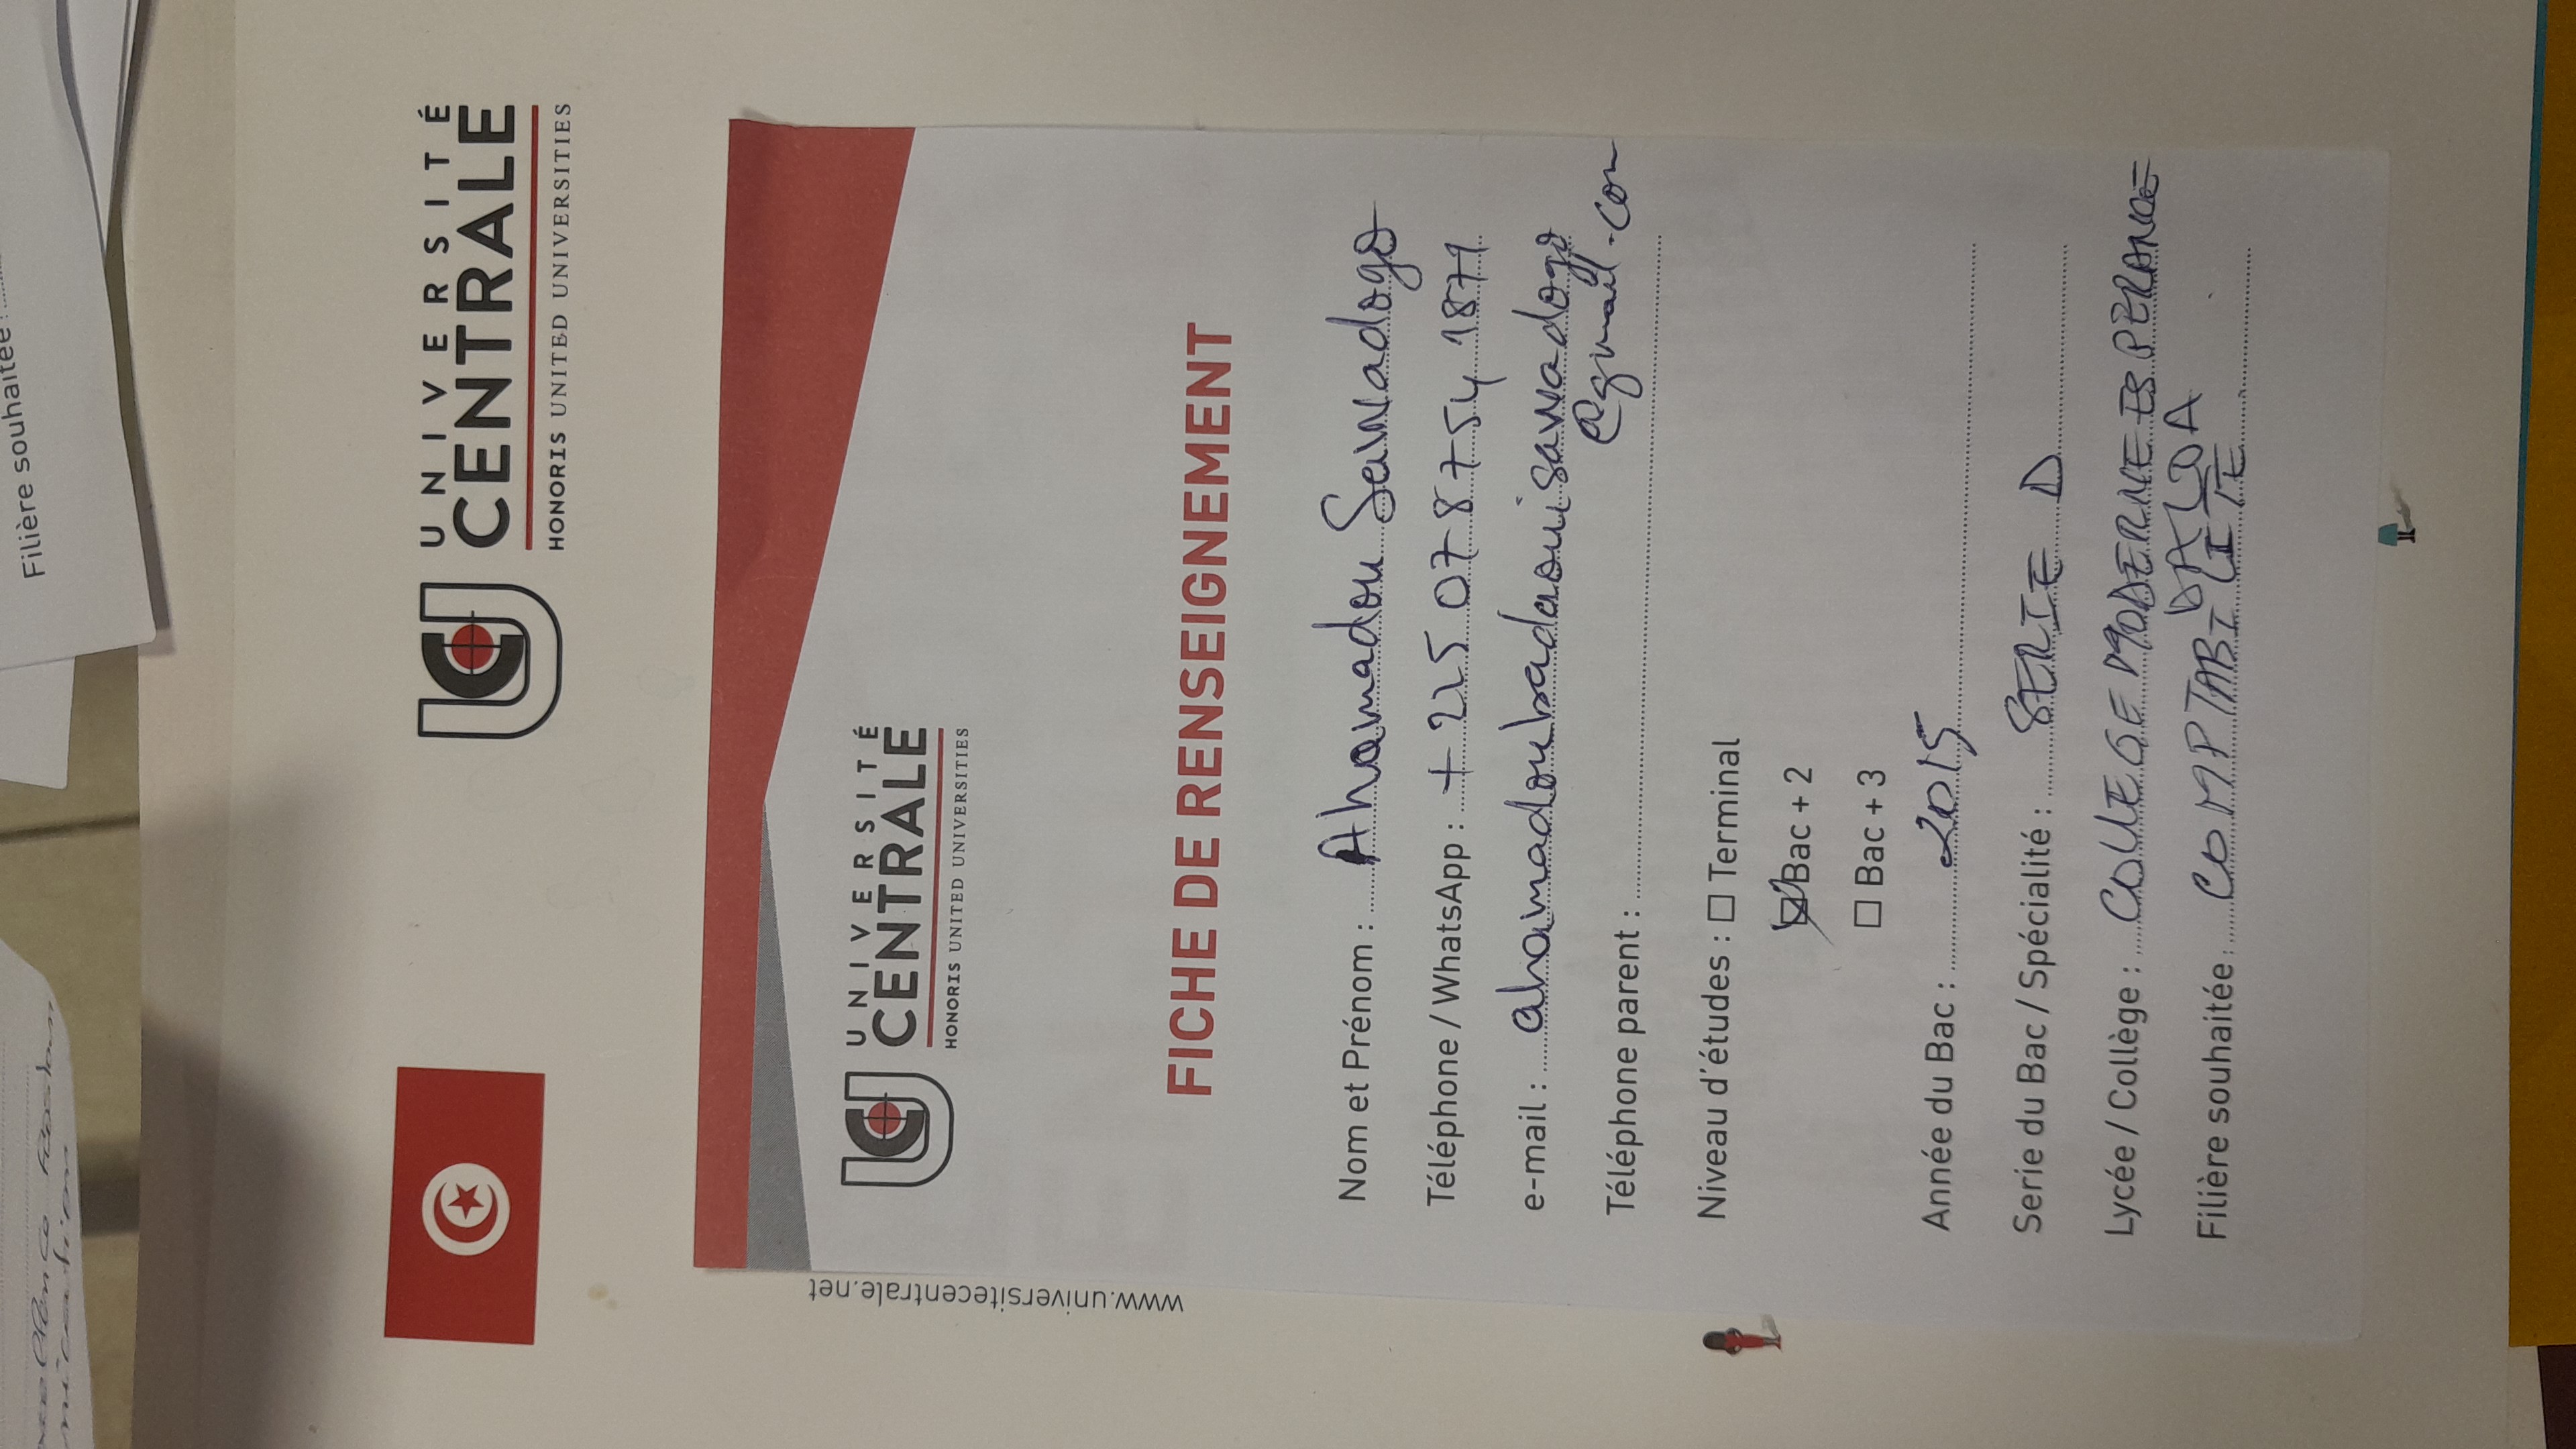 Filière souhaitée :
UNIVERSITÉ
CENTRALE
HONORIS UNITED UNIVERSITIES
www.universitecentrale.net
UNIVERSITÉ
CENTRALE
HONORIS UNITED UNIVERSITIES
FICHE DE RENSEIGNEMENT
Nom et Prénom : Ahamadou Sawadogo
Téléphone / WhatsApp : +225 07 87 54 1871
e-mail : ahamadoubadaouisawadogo
@gmail.com
Téléphone parent :
Niveau d'études : ☐ Terminal
☒ Bac + 2
☐ Bac + 3
Année du Bac : 2015
Serie du Bac / Spécialité : SERIE D
Lycée / Collège : COLLEGE MODERNE ESPERANCE
DALOA
Filière souhaitée : COMPTABILITE